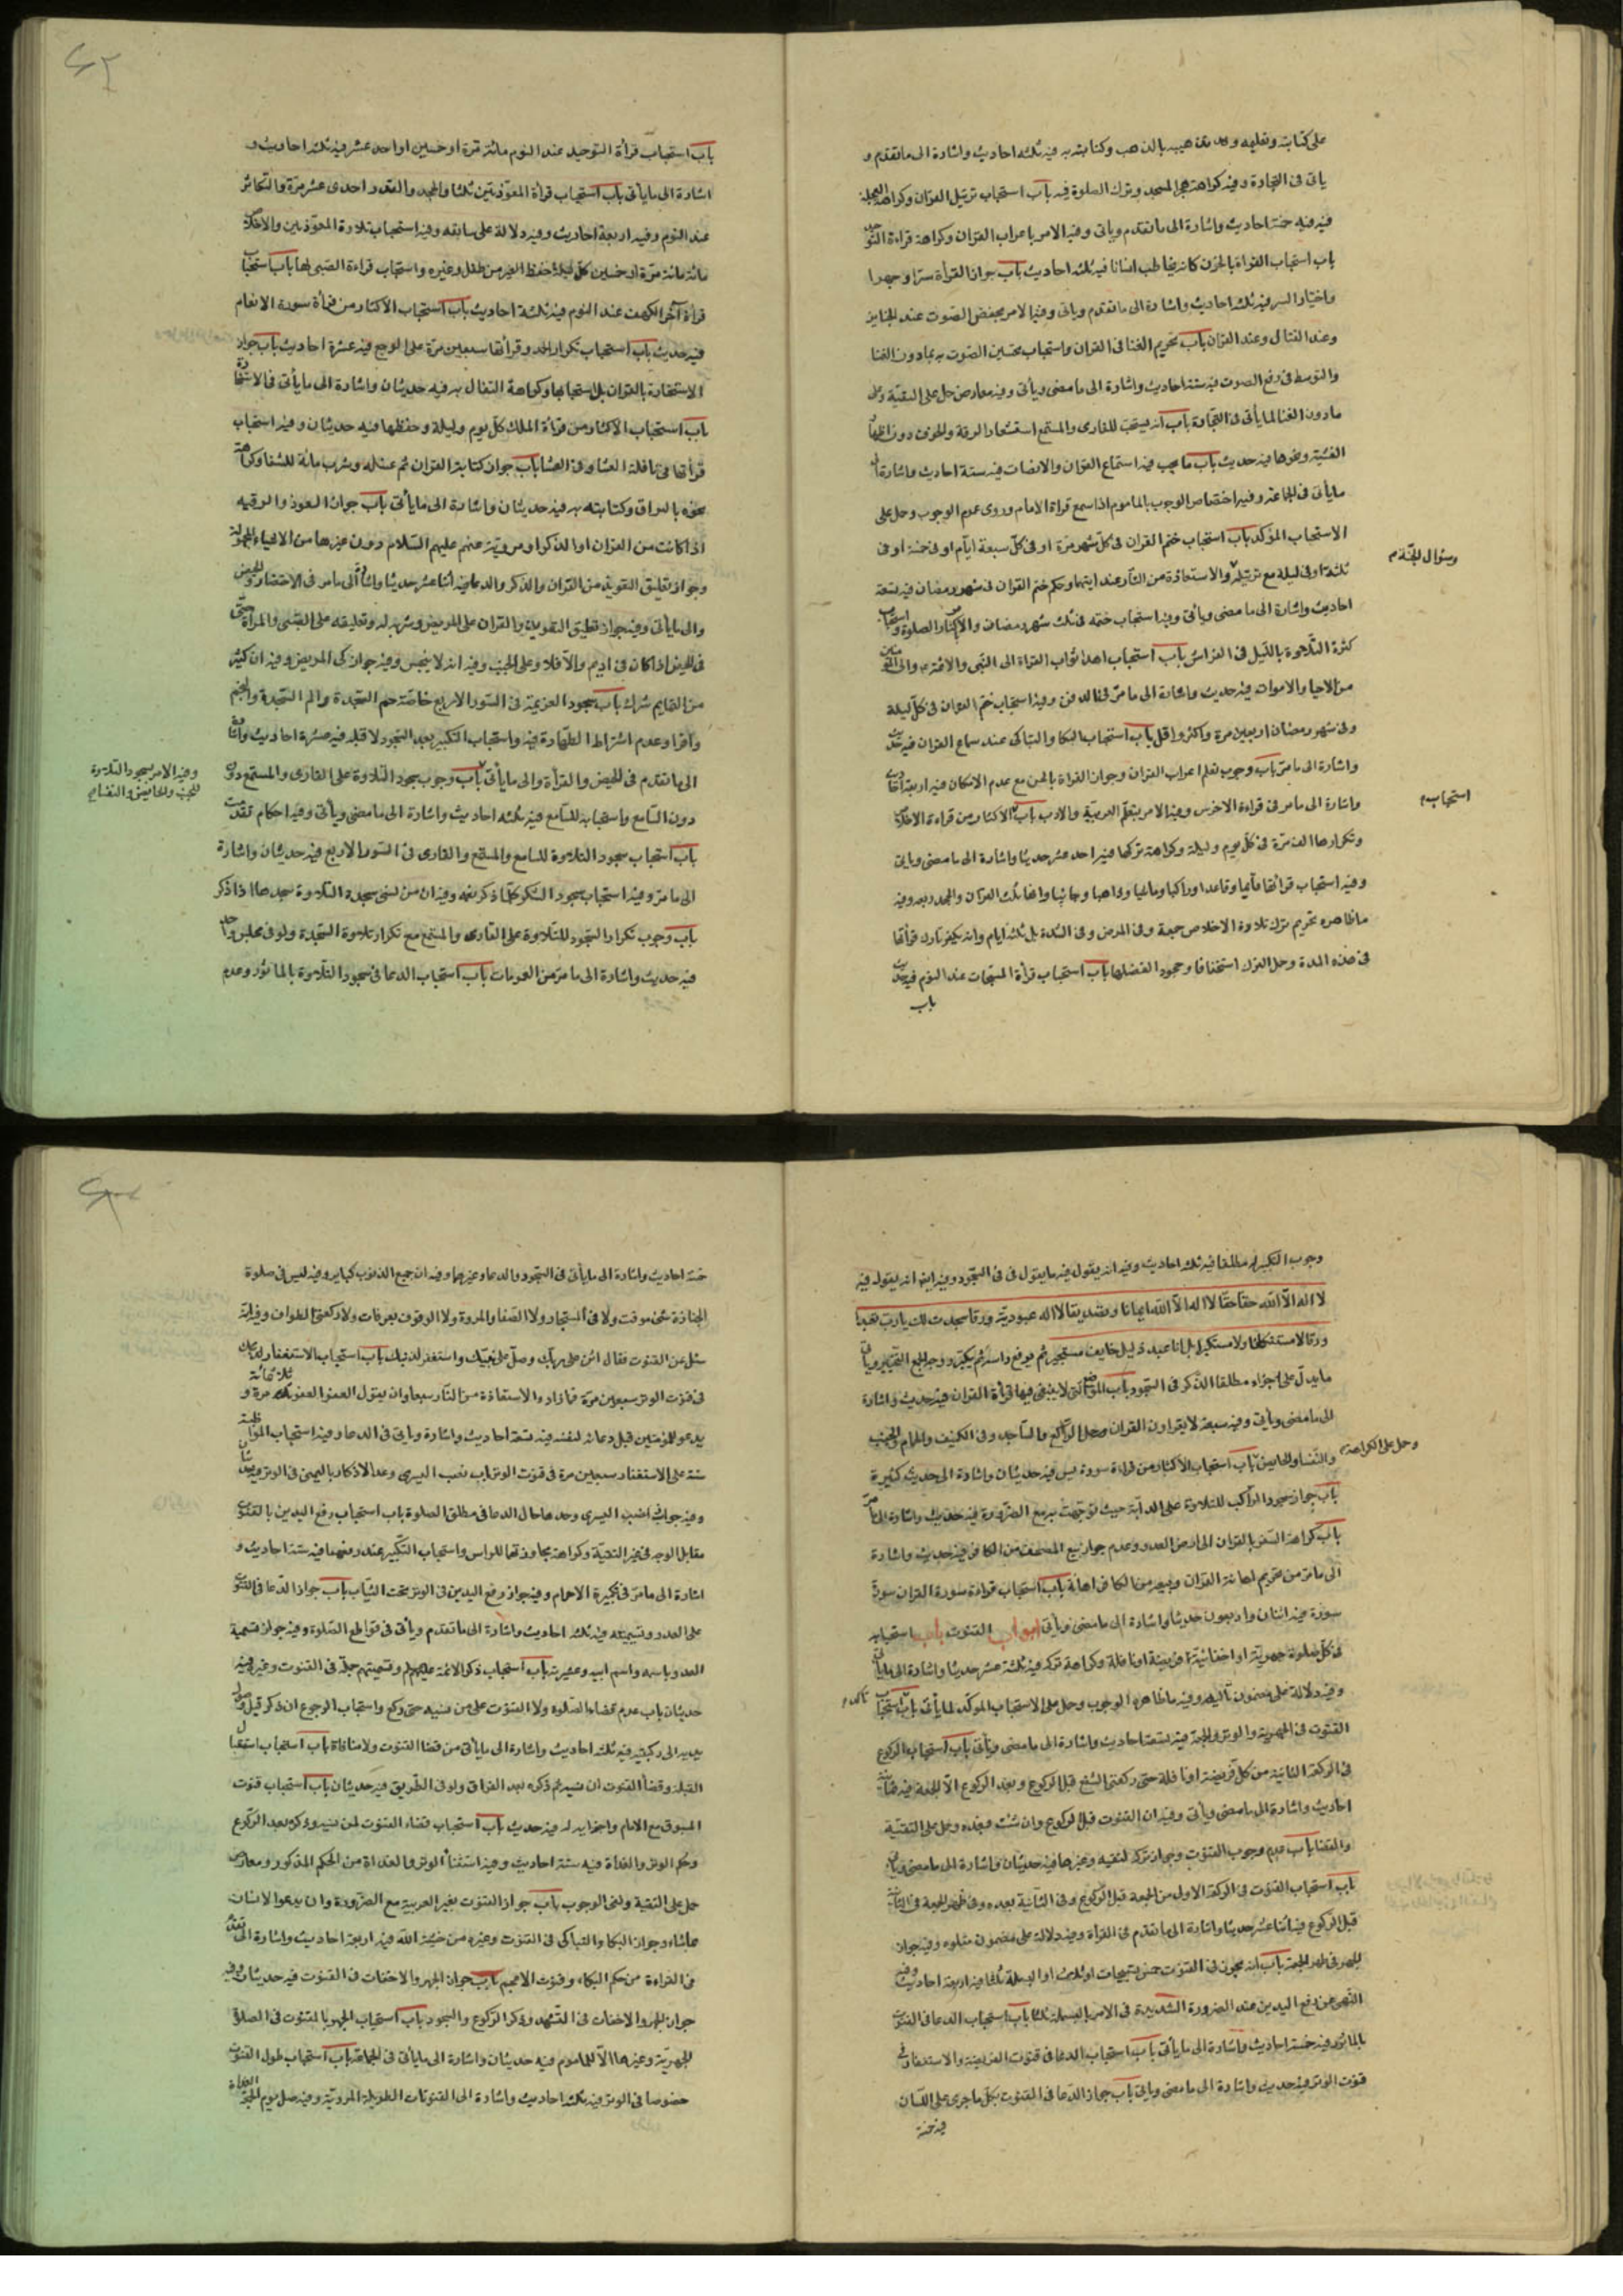 على كتابته وتعليمه وحد تذهيبه بالذهب وكتابته به فيه ثلثه احاديث واشارة الى ما تقدم و
ياتى فى التجارة وفيه كراهة هجر المسجد وترك الصلوة فيه باب استحباب ترتيل القران وكراهة العجلة
فيه فيه خمسة احاديث واشارة الى ما تقدم وياتى وفيه الامر باعراب القران وكراهة قراءة التوحيد
باب استحباب القراة بالحزن كانه يخاطب انسانا فيه ثلثه احاديث باب جواز القرأة سرا وجهرا
واختيار السر فيه ثلثه احاديث واشارة الى ما تقدم وياتى وفيه الامر بخفض الصوت عند الجنايز
وعند القتال وعند القران باب تحريم الغنا فى القران واستحباب تحسين الصوت به بما دون الغنا
والتوسط فى رفع الصوت فيه ستة احاديث واشارة الى ما مضى وياتى وفيه معارض حمل على التقية وعلى
مادون الغنا لما يأتى فى التجارة باب انه يستحب للقارى والمستمع استشعار الرقة والخوف دون اظهار
الغشية ونحوها فيه حديث باب ما يجب فيه استماع القران والانصات فيه ستة احاديث واشارة الى
ماياتى فى الجماعة وفيه اختصاص الوجوب بالماموم اذا سمع قراة الامام وروى عدم الوجوب وحمل على
الاستحباب المؤكد باب استحباب ختم القران فى كل شهر مرة او فى كل سبعة ايام او فى خمسة او فى
ثلثة او فى ليلة مع ترتيله والاستعاذة من النار عند ايتها وحكم ختم القران فى شهر رمضان فيه تسعة
وسؤال الجنة م
احاديث واشارة الى ما مضى وياتى وفيه استحباب ختمه فى تلك شهر رمضان والاكثار من الصلوة واستحباب
كثرة التلاوة بالليل فى الفراش باب استحباب اهداء ثواب القراة الى النبى والائمة م والى المؤمنين
من الاحيا والاموات فيه حديث واشارة الى ما مر فى الدفن وفيه استحباب ختم القران فى كل ليلة
وفى شهر رمضان اربعين مرة واكثر واقل باب استحباب البكا والتباكى عند سماع القران فيه حديث
واشارة الى ما مر باب وجوب تعلم اعراب القران وجواز القراة باللحن مع عدم الامكان فيه اربعة احاديث
استحباب م
واشارة الى ما مر فى قراءة الاخرس وفيه الامر بتعلم العربية والادب باب الاكثار من قراءة الاخلاص
وتكرارها الف مرة فى كل يوم وليلة وكراهة تركها فيه احد عشر حديثا واشارة الى ما مضى وياتى
وفيه استحباب قرائتها قائما وقاعدا وراكبا وماشيا وذاهبا وجائيا وانها ثلث القران والحمد ربعه وفيه
ماظاهره تحريم ترك تلاوة الاخلاص جمعة وفى المرض وفى الشدة بل ثلثه ايام وانه يكفر تارك قرأتها
فى هذه المدة وحمل الترك استخفافا وجحود الفضلها باب استحباب قرأة المسبحات عند النوم فيه حديث
باب
باب استحباب قرأة التوحيد عند النوم مائة مرة او خمسين او احد عشر فيه ثلثه احاديث و
اشارة الى ما يأتى باب استحباب قراة المعوذتين ثلثا والحمد والقدر احدى عشر مرة والتكاثر
عند النوم وفيه اربعة احاديث وفيه دلالة على سابقه وفيه استحباب تلاوة المعوذتين والاخلاص
مائة مائة مرة او خمسين كل ليلة لحفظ الغير من طفل وغيره واستحباب قراءة الصبى لها باب استحباب
قراة آخر الكهف عند النوم فيه ثلثة احاديث باب استحباب الاكثار من قرأة سورة الانعام
فيه حديث باب استحباب تكرار الحمد وقرأتها سبعين مرة على الوجع فيه عشرة احاديث باب جواز
الاستخارة بالقران بل استحبابها وكراهة التفأل به فيه حديثان واشارة الى ما يأتى فى الاستخارة
باب استحباب الاكثار من قراة الملك كل يوم وليلة وحفظها فيه حديثان وفيه استحباب
قرأتها فى نافلة العشا وفى العشا باب جواز كتابة القران ثم غسله وشرب مائه للشفا وكراهة
محوه بالبزاق وكتابته به فيه حديثان واشارة الى ما يأتى باب جواز العوذ والرقيه
اذا كانت من القران او الذكر او مروية عنهم عليهم السلام دون غيرها من الاشياء المجهولة
وجواز تعليق التعويذ من القران والذكر والدعاء فيه اثنا عشر حديثا واشارة الى ما مر فى الاحتضار والحيض
والى ما يأتى وفيه جواز تعليق التعويذ والقران على المريض وشربه له وتعليقه على الصبى والمرأة حتى
فى الحيض اذا كان فى اديم والا فلا وعلى الجنب وفيه انه لا ينجس وفيه جواز كى المريض وفيه ان كثيرا
من التمايم شرك باب سجود العزيمة فى السور الاربع خاصة حم السجدة والم السجدة والنجم
واقرا وعدم اشتراط الطهارة فيه واستحباب التكبير بعد السجود لا قبله فيه عشرة احاديث واشارة
الى ما تقدم فى الحيض والقرأة والى ما يأتى باب وجوب سجود التلاوة على القارى والمستمع دون
وفيه الامر بسجود التلاوة
للجنب والحائض والنفساء م
دون السامع واستحبابه للسامع فيه ثلثه احاديث واشارة الى ما مضى ويأتى وفيه احكام تقدمت
باب استحباب سجود التلاوة للسامع والمستمع والقارى فى السور الاربع فيه حديثان واشارة
الى ما مر وفيه استحباب سجود الشكر كلما ذكر نعمه وفيه ان من نسى سجدة التلاوة سجدها اذا ذكر
باب وجوب تكرار السجود للتلاوة على القارى والمستمع مع تكرار تلاوة السجدة ولو فى مجلس واحد
فيه حديث واشارة الى ما مر من العمومات باب استحباب الدعا فى سجود التلاوة بالماثور وعدم
وجوب التكبير له مطلقا فيه ثلثه احاديث وفيه انه يقول فيه ما يقول فى فى السجود وفيه ايضا انه يقول فيه
لا اله الا الله حقا حقا لا اله الا الله ايمانا وتصديقا لا اله عبودية ورقا سجدت لك يا رب تعبدا
ورقا لا مستنكفا ولا مستكبرا بل انا عبد ذليل خايف مستجير ثم يرفع راسه ثم يكبر ووجه الجمع التخيير وياتى
ما يدل على اجزاء مطلقا الذكر فى السجود باب المواضع التى لا ينبغى فيها قرأة القران فيه حديث واشارة
الى ما مضى ويأتى وفيه سبعة لا يقراون القران الراكع والساجد وفى الكنيف والحمام والجنب
والنفسا والحايض باب استحباب الاكثار من قراءة سورة يس فيه حديثان واشارة الى حديث كثيرة
وحمل على الكراهة م
باب جواز سجود الراكب للتلاوة على الدابة حيث توجهت به مع الضرورة فيه حديث واشارة الى ما مر
باب كراهة السفر بالقران الى ارض العدو وعدم جواز بيع المصحف من الكافر فيه حديث واشارة
الى ما مر من تحريم اهانة القران وبيعه من الكافر اهانة باب استحباب قراءة سورة القران سورة
سورة فيه اثنان واربعون حديثا واشارة الى ما مضى ويأتى ابواب القنوت باب استحبابه
فى كل صلوة جهرية او اخفاتية فريضة او نافلة وكراهة تركه فيه ثلثة عشر حديثا واشارة الى ما يأتى
وفيه دلالة على مضمون تاليه وفيه ماظاهره الوجوب وحمل على الاستحباب المؤكد لما يأتى باب استحباب
تاكد م
القنوت فى الجهرية والوتر والجمعة فيه تسعة احاديث واشارة الى ما مضى ويأتى باب استحباب الركوع
فى الركعة الثانية من كل فريضة او نافلة حتى ركعتى الشفع قبل الركوع وبعد الركوع الا الجمعة فيه ثمانية
احاديث واشارة الى ما مضى ويأتى وفيه ان القنوت قبل الركوع وان شئت فبعده وحمل على التقية
والقضا باب عدم وجوب القنوت وجواز تركه لتقيه وغيرها فيه حديثان واشارة الى ما مضى وياتى
باب استحباب القنوت فى الركعة الاولى من الجمعة قبل الركوع وفى الثانية بعده وفى ظهر الجمعة فى الثانية
قبل الركوع فيه اثنا عشر حديثا واشارة الى ما تقدم فى القراة وفيه دلالة على مضمون متلوه وفيه جواز
الجهر فى ظهر الجمعة باب انه يجزى فى القنوت خمس تسبيحات او ثلاث او البسملة ثلثا فيه اربعة احاديث وفيه
النهى عن رفع اليدين عند الضرورة الشديدة فى الامر بالبسملة ثلثا باب استحباب الدعا فى القنوت
بالماثور فيه خمسة احاديث واشارة الى ما ياتى باب استحباب الدعا فى قنوت الفريضة والاستغفار فى
قنوت الوتر فيه حديث واشارة الى ما مضى وياتى باب جواز الدعا فى القنوت بكل ما جرى على اللسان
فيه خمسة
خمسة احاديث واشارة الى ما يأتى فى السجود والدعا وغيرها وفيه ان جميع الذنوب كباير وفيه ليس فى صلوة
الجنازة شئ موقت ولا فى المستجار ولا الصفا والمروة ولا الوقوف بعرفات ولا ركعتى الطواف وفيه انه
سئل عن القنوت فقال اثن على ربك وصل على نبيك واستغفر لذنبك باب استحباب الاستغفار
فى قنوت الوتر سبعين مرة فما زاد والاستعاذة من النار سبعا وان يقول العفو العفو ثلاثمائة مرة و
يدعو للمؤمنين قبل دعائه لنفسه فيه تسعة احاديث واشارة وياتى فى الدعا وفيه استحباب المواظبة
سنة على الاستغفار سبعين مرة فى قنوت الوتر باب نصب اليسرى وعد الاذكار باليمنى فى الوتر فيه حديثان
وفيه جواز نصب اليسرى وحدها حال الدعا فى مطلق الصلوة باب استحباب رفع اليدين بالقنوت
مقابل الوجه فى غير التقية وكراهة مجاوزتها للراس واستحباب التكبير عند رفعهما فيه ستة احاديث و
اشارة الى ما مر فى تكبيرة الاحرام وفيه جواز رفع اليدين فى الوتر تحت الثياب باب جواز الدعا فى القنوت
على العدو وتسميته فيه ثلثه احاديث واشارة الى ما تقدم ويأتى فى قواطع الصلوة وفيه جواز تسمية
العدو باسمه واسم ابيه وعشيرته باب استحباب ذكر الائمة عليهم لم وتسميتهم جملة فى القنوت وغيره فيه
حديثان باب عدم قضاء الصلوة ولا القنوت على من نسيه حتى ركع واستحباب الرجوع ان ذكر قبل وصول
يديه الى ركبتيه فيه ثلثه احاديث واشارة الى ما يأتى من قضا القنوت ولا منافاة باب استحباب استقبال
القبلة وقضاء القنوت ان نسيه ثم ذكره بعد الفراق ولو فى الطريق فيه حديثان باب استحباب قنوت
المسبوق مع الامام واجزايه له فيه حديث باب استحباب قضاء القنوت لمن نسيه وذكره بعد الركوع
وحكم الوتر والغداة فيه ستة احاديث وفيه استثناء الوتر والغداة من الحكم المذكور ومعارض
حمل على التقية ونفى الوجوب باب جواز القنوت بغير العربية مع الضرورة وان يدعو الانسان
بماشاء وجواز البكا والتباكى فى القنوت وغيره من خشية الله فيه اربعة احاديث واشارة الى ما تقدم
فى القراءة من حكم البكاء وقنوت الاعجم باب جواز الجهر والاخفات فى القنوت فيه حديثان وفيه
جواز الجهر والاخفات فى التشهد وذكر الركوع والسجود باب استحباب الجهر بالقنوت فى الصلوة
الجهرية وغيرها الا للماموم فيه حديثان واشارة الى ما يأتى فى الجماعة باب استحباب طول القنوت
خصوصا فى الوتر فيه ثلثه احاديث واشارة الى القنوتات الطويلة المروية وفيه صل يوم الجمعة الغداة